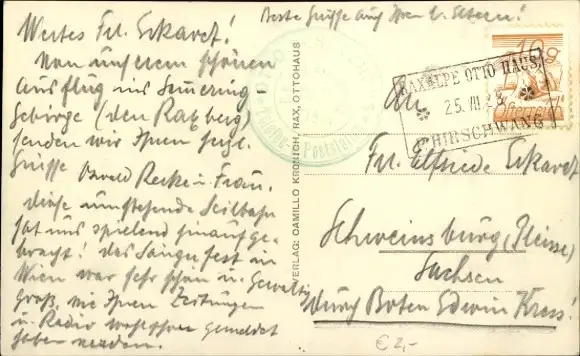 Beste Grüsse auch Ihren l. Eltern!
Wertes Frl. Eckardt!
Von unserem schönen
Ausflug ins Semering
Gebirge (den Raxberg)
senden wir Ihnen herzl.
Grüsse Oswald Recke u. Frau.
diese umstehende Seilbahn
hat uns spielend hinaufge-
bracht! das Sängerfest in
Wien war sehr schön u. Gewaltig
Groß, wie Ihnen Zeitungen
u. Radio wohl schon gemeldet
haben werden.
VERLAG: CAMILLO KRONICH, RAX, OTTOHAUS
10g
RAXALPE OTTO HAUS,
25. III. 28
P. HIRSCHWANG
An
Frl. Elfriede Eckardt
Schweinsburg (Pleisse)
Sachsen
durch Boten Edwin Kress!
€ 2,-